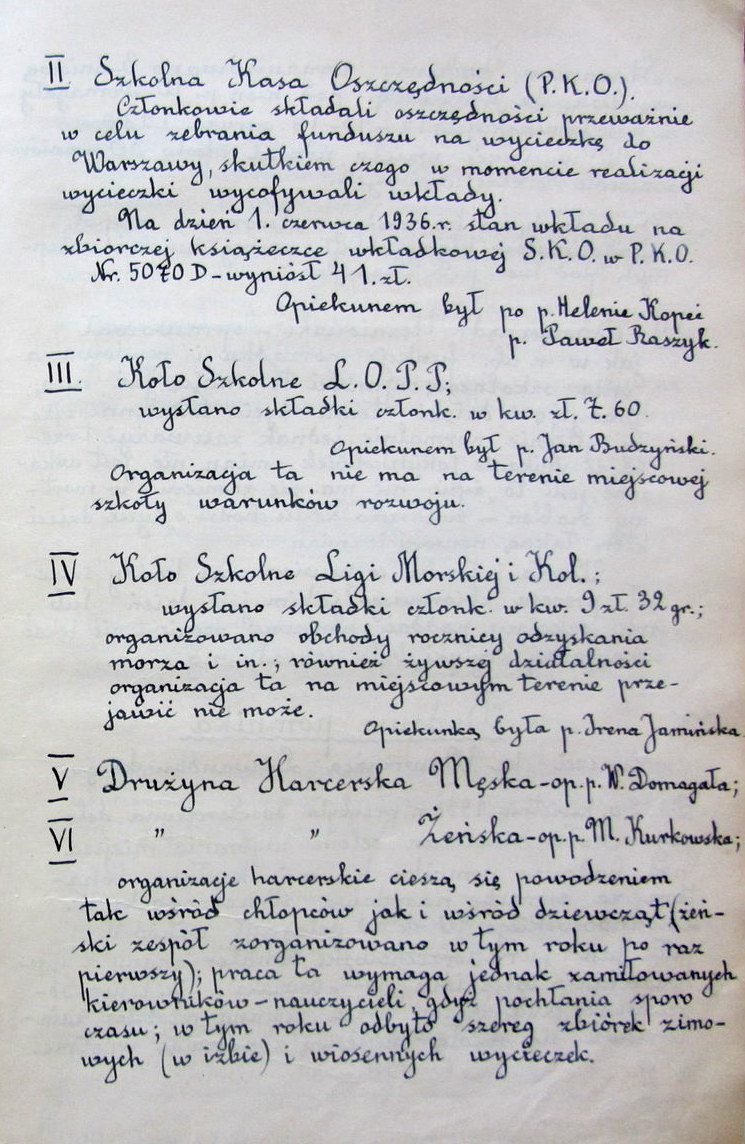 II. Szkolna Kasa Oszczędności (P.K.O.).
Członkowie składali oszczędności przeważnie
w celu zebrania funduszu na wycieczkę do
Warszawy, skutkiem czego w momencie realizacji
wycieczki wycofywali wkłady.
Na dzień 1. czerwca 1936.r. stan wkładu na
zbiorczej książeczce wkładkowej S.K.O. w P.K.O.
Nr. 5070 D - wyniósł 41. zł.
Opiekunem był po p. Helenie Kopeć
p. Paweł Raszyk.
III. Koło Szkolne L.O.P.P;
wysłano składki członk. w kw. zł. 7.60.
Opiekunem był p. Jan Budzyński.
Organizacja ta nie ma na terenie miejscowej
szkoły warunków rozwoju.
IV Koło Szkolne Ligi Morskiej i Kol.;
wysłano składki członk. w kw. 9 zł. 32 gr.;
organizowano obchody rocznicy odzyskania
morza i in.; również żywszej działalności
organizacja ta na miejscowym terenie prze-
jawić nie może.
Opiekunką była p. Irena Jamińska
V Drużyna Harcerska Męska - op. p. W. Domagała;
VI " " Żeńska - op. p. M. Kurkowska;
organizacje harcerskie cieszą się powodzeniem
tak wśród chłopców jak i wśród dziewcząt (żeń-
ski zespół zorganizowano w tym roku po raz
pierwszy); praca ta wymaga jednak zamiłowanych
kierowników - nauczycieli, gdyż pochłania sporo
czasu; w tym roku odbyto szereg zbiórek zimo-
wych (w izbie) i wiosennych wycieczek.